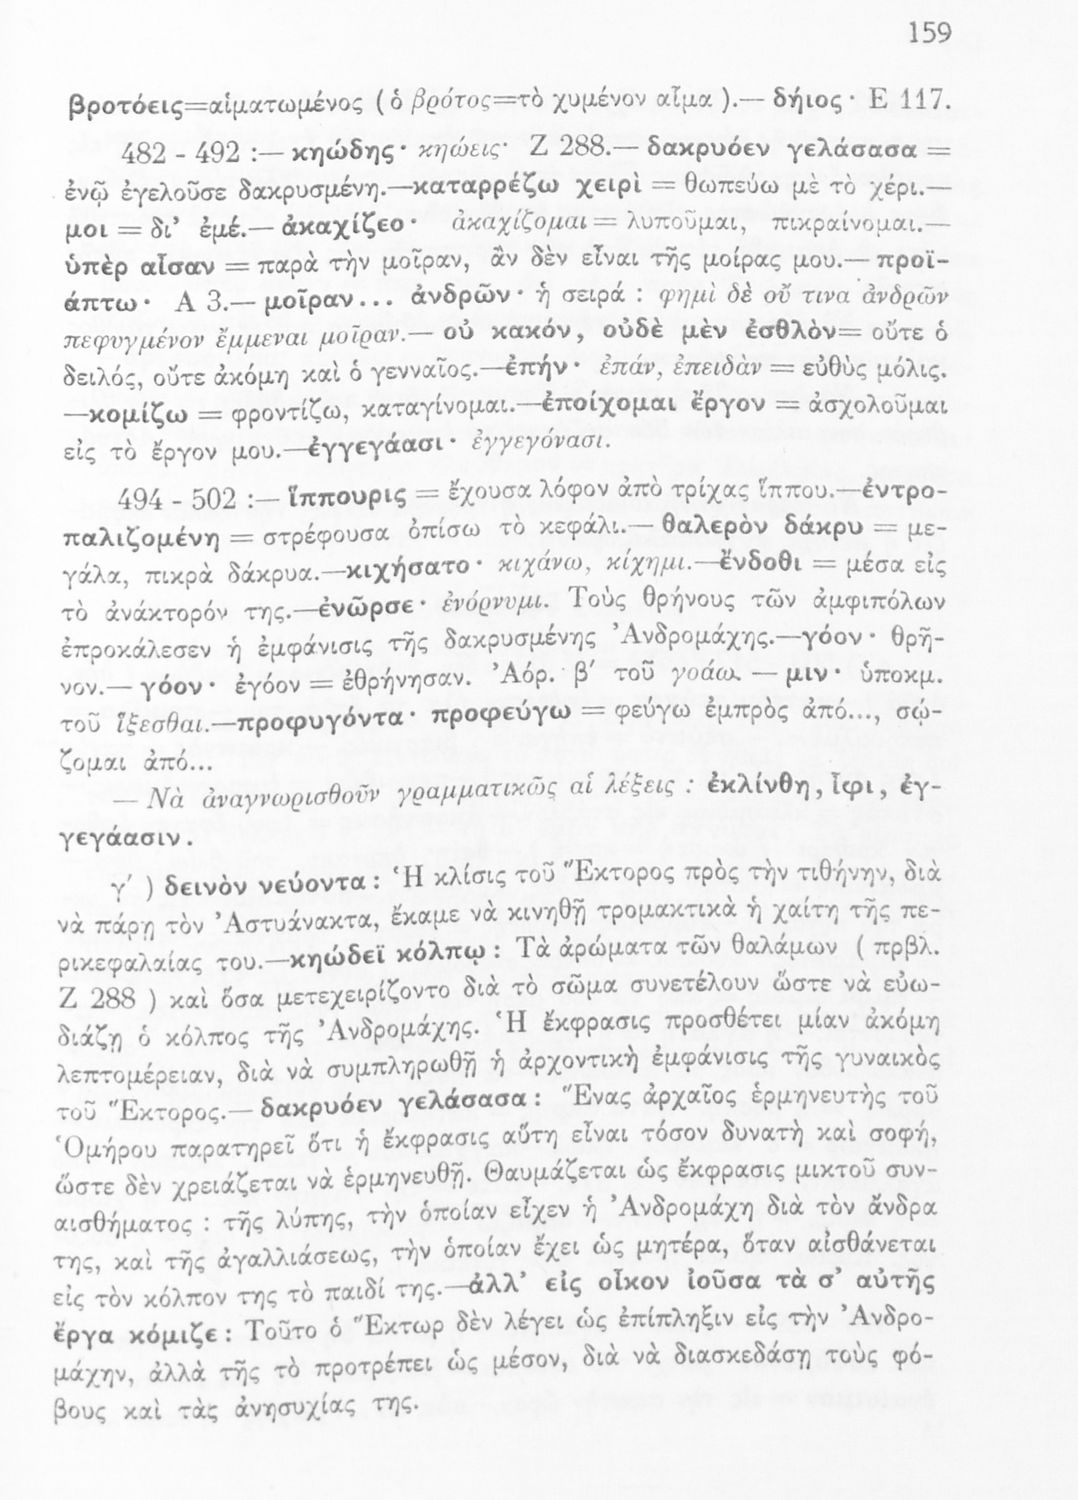 159
βροτόεις=αἱματωμένος (ὁ βρότος=τὸ χυμένον αἷμα).— δήιος· Ε 117.
482 - 492 :— κηώδης· κηώεις· Ζ 288.— δακρυόεν γελάσασα =
ἐνῷ ἐγελοῦσε δακρυσμένη.—καταρρέζω χειρὶ = θωπεύω μὲ τὸ χέρι.—
μοι = δι' ἐμέ.— ἀκαχίζεο· ἀκαχίζομαι = λυποῦμαι, πικραίνομαι.—
ὑπὲρ αἶσαν = παρὰ τὴν μοῖραν, ἂν δὲν εἶναι τῆς μοίρας μου.— προϊ-
άπτω· Α 3.— μοῖραν... ἀνδρῶν· ἡ σειρά : φημὶ δὲ οὔ τινα ἀνδρῶν
πεφυγμένον ἔμμεναι μοῖραν.— οὐ κακόν, οὐδὲ μὲν ἐσθλὸν= οὔτε ὁ
δειλός, οὔτε ἀκόμη καὶ ὁ γενναῖος.—ἐπήν· ἐπάν, ἐπειδὰν = εὐθὺς μόλις.
—κομίζω = φροντίζω, καταγίνομαι.—ἐποίχομαι ἔργον = ἀσχολοῦμαι
εἰς τὸ ἔργον μου.—ἐγγεγάασι· ἐγγεγόνασι.
494 - 502 :— ἵππουρις = ἔχουσα λόφον ἀπὸ τρίχας ἵππου.—ἐντρο-
παλιζομένη = στρέφουσα ὀπίσω τὸ κεφάλι.— θαλερὸν δάκρυ = με-
γάλα, πικρὰ δάκρυα.—κιχήσατο· κιχάνω, κίχημι.—ἔνδοθι = μέσα εἰς
τὸ ἀνάκτορόν της.—ἐνῶρσε· ἐνόρνυμι. Τοὺς θρήνους τῶν ἀμφιπόλων
ἐπροκάλεσεν ἡ ἐμφάνισις τῆς δακρυσμένης Ἀνδρομάχης.—γόον· θρῆ-
νον.— γόον· ἐγόον = ἐθρήνησαν. Ἀόρ. β′ τοῦ γοάω. — μιν· ὑποκμ.
τοῦ ἵξεσθαι.—προφυγόντα· προφεύγω = φεύγω ἐμπρὸς ἀπό..., σῴ-
ζομαι ἀπό...
— Νὰ ἀναγνωρισθοῦν γραμματικῶς αἱ λέξεις : ἐκλίνθη, ἶφι, ἐγ-
γεγάασιν.
γ′ ) δεινὸν νεύοντα : Ἡ κλίσις τοῦ Ἕκτορος πρὸς τὴν τιθήνην, διὰ
νὰ πάρῃ τὸν Ἀστυάνακτα, ἔκαμε νὰ κινηθῇ τρομακτικὰ ἡ χαίτη τῆς πε-
ρικεφαλαίας του.—κηώδεϊ κόλπῳ : Τὰ ἀρώματα τῶν θαλάμων ( πρβλ.
Ζ 288 ) καὶ ὅσα μετεχειρίζοντο διὰ τὸ σῶμα συνετέλουν ὥστε νὰ εὐω-
διάζῃ ὁ κόλπος τῆς Ἀνδρομάχης. Ἡ ἔκφρασις προσθέτει μίαν ἀκόμη
λεπτομέρειαν, διὰ νὰ συμπληρωθῇ ἡ ἀρχοντικὴ ἐμφάνισις τῆς γυναικὸς
τοῦ Ἕκτορος.— δακρυόεν γελάσασα : Ἕνας ἀρχαῖος ἑρμηνευτὴς τοῦ
Ὁμήρου παρατηρεῖ ὅτι ἡ ἔκφρασις αὕτη εἶναι τόσον δυνατὴ καὶ σοφή,
ὥστε δὲν χρειάζεται νὰ ἑρμηνευθῇ. Θαυμάζεται ὡς ἔκφρασις μικτοῦ συν-
αισθήματος : τῆς λύπης, τὴν ὁποίαν εἶχεν ἡ Ἀνδρομάχη διὰ τὸν ἄνδρα
της, καὶ τῆς ἀγαλλιάσεως, τὴν ὁποίαν ἔχει ὡς μητέρα, ὅταν αἰσθάνεται
εἰς τὸν κόλπον της τὸ παιδί της.—ἀλλ' εἰς οἶκον ἰοῦσα τὰ σ' αὐτῆς
ἔργα κόμιζε : Τοῦτο ὁ Ἕκτωρ δὲν λέγει ὡς ἐπίπληξιν εἰς τὴν Ἀνδρο-
μάχην, ἀλλὰ τῆς τὸ προτρέπει ὡς μέσον, διὰ νὰ διασκεδάσῃ τοὺς φό-
βους καὶ τὰς ἀνησυχίας της.